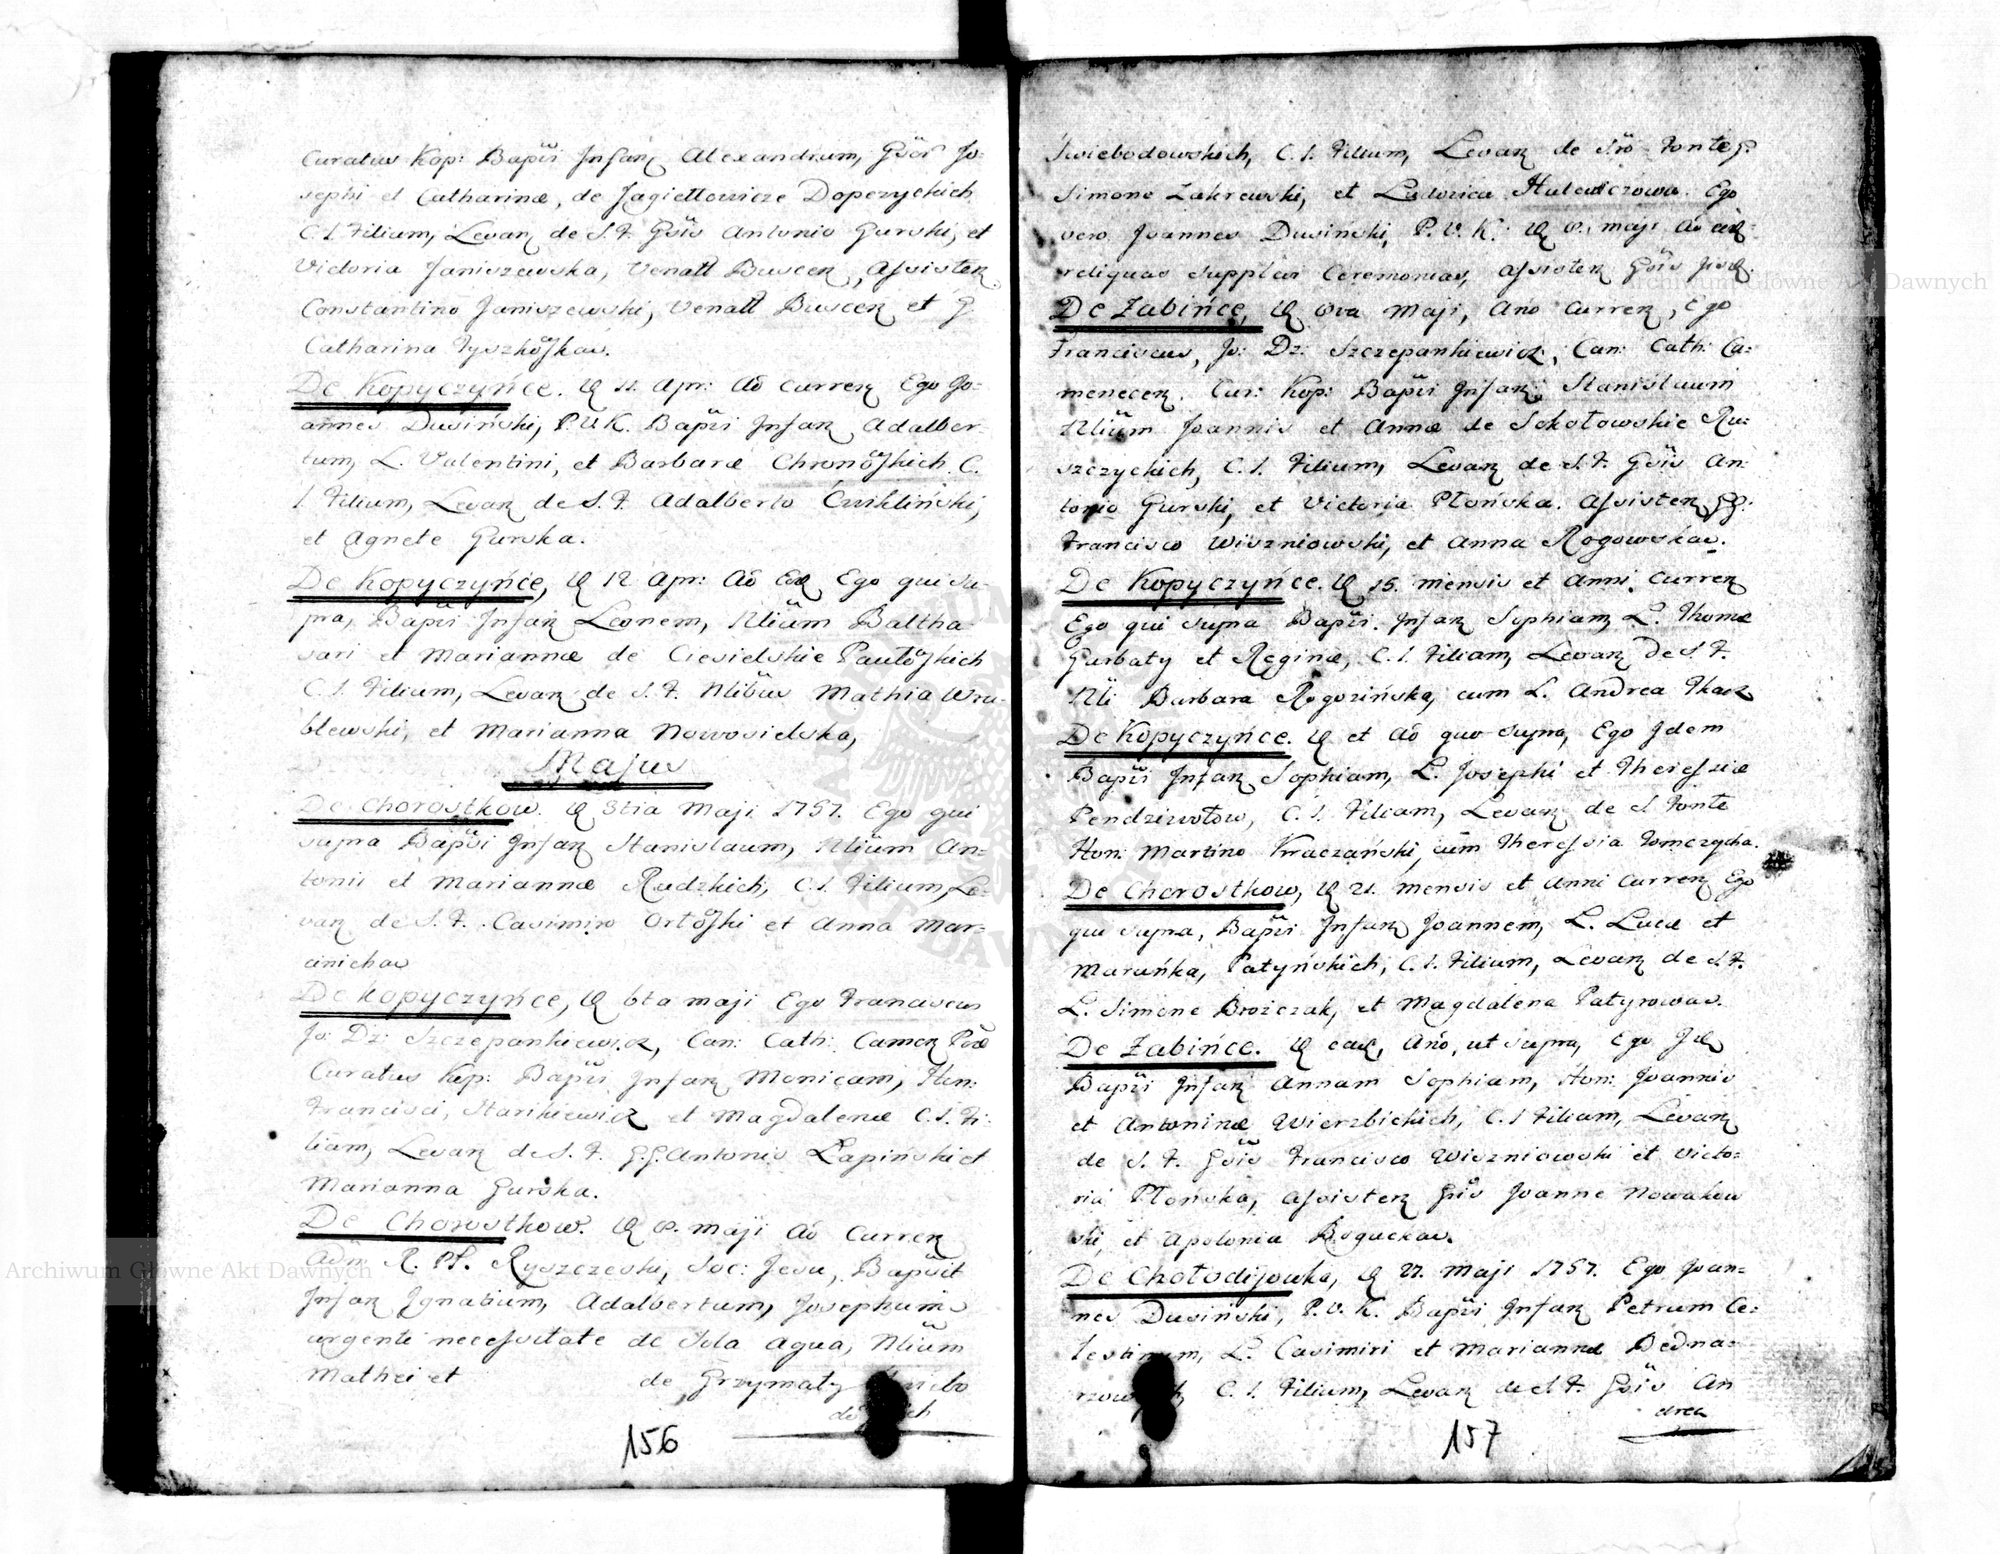 Curatus Kop: Bapzi Infan Alexandrum, Gsor Jo=
sephi et Catharinæ, de Jagiełłowicze Doperzyckich
C. I. Filium, Levan de S. F. Gsis Antonio Gurski, et
Victoria Janiszewska, Venatt Buscen, Assisten
Constantino Janiszewski, Venatt Buscen et G
Catharina
De Kopyczyńce. D 11. Apr: Ao Curren Ego Jo=
annes Dusiński, P.V.K. Bapzi Infan Adalber
tum, L. Valentini, et Barbaræ C.
I. Filium, Levan de S. F. Adalberto Cwikliński,
et Agnete Gurska.
De Kopyczyńce, D 12 Apr: Ao Eod Ego qui su=
pra, Bapzi Infan Leonem, Nlium Baltha
sari et Mariannæ de Ciesielskie
C. I. Filium, Levan de S. F. Nlibus Mathia Wru=
blewski, et Marianna Nowosielska,
Majus
De Chorostkow. D 3tia Maji 1757. Ego qui
supra Bapzi Infan Stanislaum, Nlium An=
tonii et Mariannæ Rudzkich, C. I. Filium, Le=
van de S. F. Casimiro et Anna Mar=
cinicha
De Kopyczyńce, D 6ta Maji Ego Franciscus
Jo: Dz: Szczepankiewicz, Can: Cath: Camen
Curatus Kop: Bapzi Infan Monicam, Hon:
Francisci, Starikiewicz et Magdalenæ C. I. Fi=
liam, Levan de S. F. G.G. Antonio Łapiński et
Marianna Gurska.
De Chorostkow. D 8. Maji Ao Curren
Adm R. Pt. Ryszczeski, Soc: Jesu, Bapzit
Infan Ignatium, Adalbertum, Josephum
urgenti necessitate de Sola Aqua, Nlium
Mathei et de Grzymały
156
Swiebodowskich, C. I. Filium, Levan de Sro Fonte
Simone Zakrewski, et Ludovica Hulewiczowa. Ego
vero Joannes Dusiński, P. V. K. D 8. Maji Ao
reliquas supplevi Ceremonias, Assisten Gsis
De Zabińce, D 8va Maji, Ano Curren, Ego
Franciscus, Jo: Dz: Szczepankiewicz, Can: Cath: Ca=
menecen. Cur: Kop: Bapzi Infan Stanislaum
Nlium Joannis et Annæ de Sokołowskie Ru=
szczyckich, C. I. Filium, Levan de S. F. Gsis An=
tonio Gurski, et Victoria Płońska. Assisten GG.
Francisco Wiszniowski, et Anna Rogowska.
De Kopyczyńce. D 15. mensis et Anni Curren
Ego qui supra Bapzi. Infan Sophiam, L. Thomæ
Garbaty et Reginæ, C. I. Filiam, Levan De S. F.
Nli Barbara Rogozińska, cum L. Andrea Tkacz
De Kopyczyńce. D et Ao quo supra, Ego Idem
Bapzi Infan Sophiam, L. Josephi et Theressiæ
C. I. Filiam, Levan de S Fonte
Hon: Martino cum Theressia Tomczycha.
De Chorostkow, D 21. mensis et Anni Curren Ego
qui supra, Bapzi Infan Joannem, L. Lucæ et
Maruńka, Patyńskich, C. I. Filium, Levan de S F.
L. Simone Brozczak, et Magdalena Patyrowa.
De Zabińce. D ead, Ano, ut supra, Ego
Bapzi Infan Annam Sophiam, Hon: Joannis
et Antoninæ Wierzbickich, C. I Filiam, Levan
de S. F. Gsis Francisco Wiszniowski et Victo=
ria Płońska, Assisten Gsis Joanne Nowakow
ski, et Apolonia Bogucka.
De Chołodijowka, D 22. Maji 1757. Ego Joan=
nes Dusiński, P. V. K. Bapzi Infan Petrum Ce=
lestinum, L. Casimiri et Mariannæ Bedna=
C. I. Filium, Levan de S F. Gsis An
drea
157
Archiwum Główne Akt Dawnych
Archiwum Główne Akt Dawnych